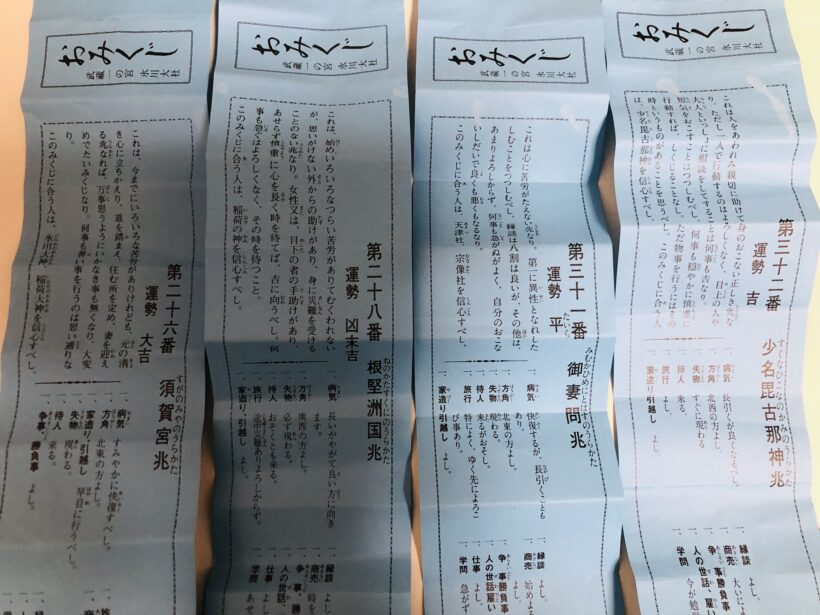 おみくじ
武蔵一の宮 氷川大社
第三十二番 少名毘古那神兆
すくなびこなのかみのうらかた
運勢 吉
これは人をあわれみ親切に助けて身のおこない正しき兆な
り。ただし一人で行動するのはよろしくなく、目上の人や
大人といっしょに相談をしてすることは何事も吉なり。
短気をおこすことはつつしむべし。何事も穏やかに慎重に
行動すれば、とくしくることなし。ただ物事を行うにはその
時というものがあることを思うべし。このみくじに合う人
は、少名毘古那神を信心すべし。
一、病気 長引くが良くなるべし。
一、方角 北西の方よし。
一、失物 すぐに現わる
一、待人 来る。
一、旅行 よし。
一、家造り引越し よし。
一、縁談
一、商売 よし。
一、争事勝負事
一、人の世話、雇
一、学問
おみくじ
武蔵一の宮 氷川大社
第三十一番 御妻問兆
みむかひめどとはすのうらかた
運勢 平
たいら
これは心に苦労がたえない兆なり。第一に異性となれした
しむことをつつしむべし。縁談は八割は良いが、その他は、
あまりよろしからず、何事も急がぬがよく、自分のおこな
いしだいで良くも悪くもなるなり。
このみくじに合う人は、天津社、宗像社を信心すべし。
一、病気 快復するが、長引くことも
あり。
一、方角 北の方よし。
一、失物 現わる。
一、待人 来るがおそし。
一、旅行 特によく、ゆく先によろこ
び事あり。
一、家造り引越し よし。
一、縁談 よし。
一、商売 始めよ
一、争事勝負事
一、人の世話雇い
一、仕事 よし。
一、学問 急がず
おみくじ
武蔵一の宮 氷川大社
第二十八番 根堅洲国兆
ねのかたすくにのうらかた
運勢 凶末吉
これは、始めいろいろなつらい苦労がありてむくわれない
が、思いがけない外からの助けがあり、身に災難を受ける
ことのない兆なり。女性又は、目下の者の手助けがあり、
あせらず慎重に心を長く時を待てば、吉に向うべし。何
事も急ぐはよろしくなく、その時を待つこと。
このみくじに合う人は、稲荷の神を信心すべし。
一、病気 長いがやがて良い方に向き
ます。
一、方角 南西の方よし。
一、失物 必ず現わる。
一、待人 おそくとも来る。
一、旅行 途中災難ありよろしからず。
一、家造り、引越し よし。
一、縁談 よし。
一、商売 時を
一、争事、勝
一、人の世話、
一、仕事 よし。
一、学問 あせ
おみくじ
武蔵一の宮 氷川大社
第二十六番 須賀宮兆
すがのみやのうらかた
運勢 大吉
これは、今までにいろいろな苦労がありけれども、元の清
き心に立ちかえり、道を踏まえ、住む所を定め、妻を迎え
る兆なれば、万事思うようにいかなき事も無くなり、大変
めでたいみくじなり。何事も善い事を行うのは思い通りな
り。
このみくじに合う人は、氷川大神、稲荷大神を信心すべし。
一、病気 すみやかに快復すべし。
一、方角 北東の方よし。
一、家造り、引越し 早目に行うべし。
一、失物 現わる。
一、待人 来る。
一、争事、勝負事 よし。
一、商売 よし